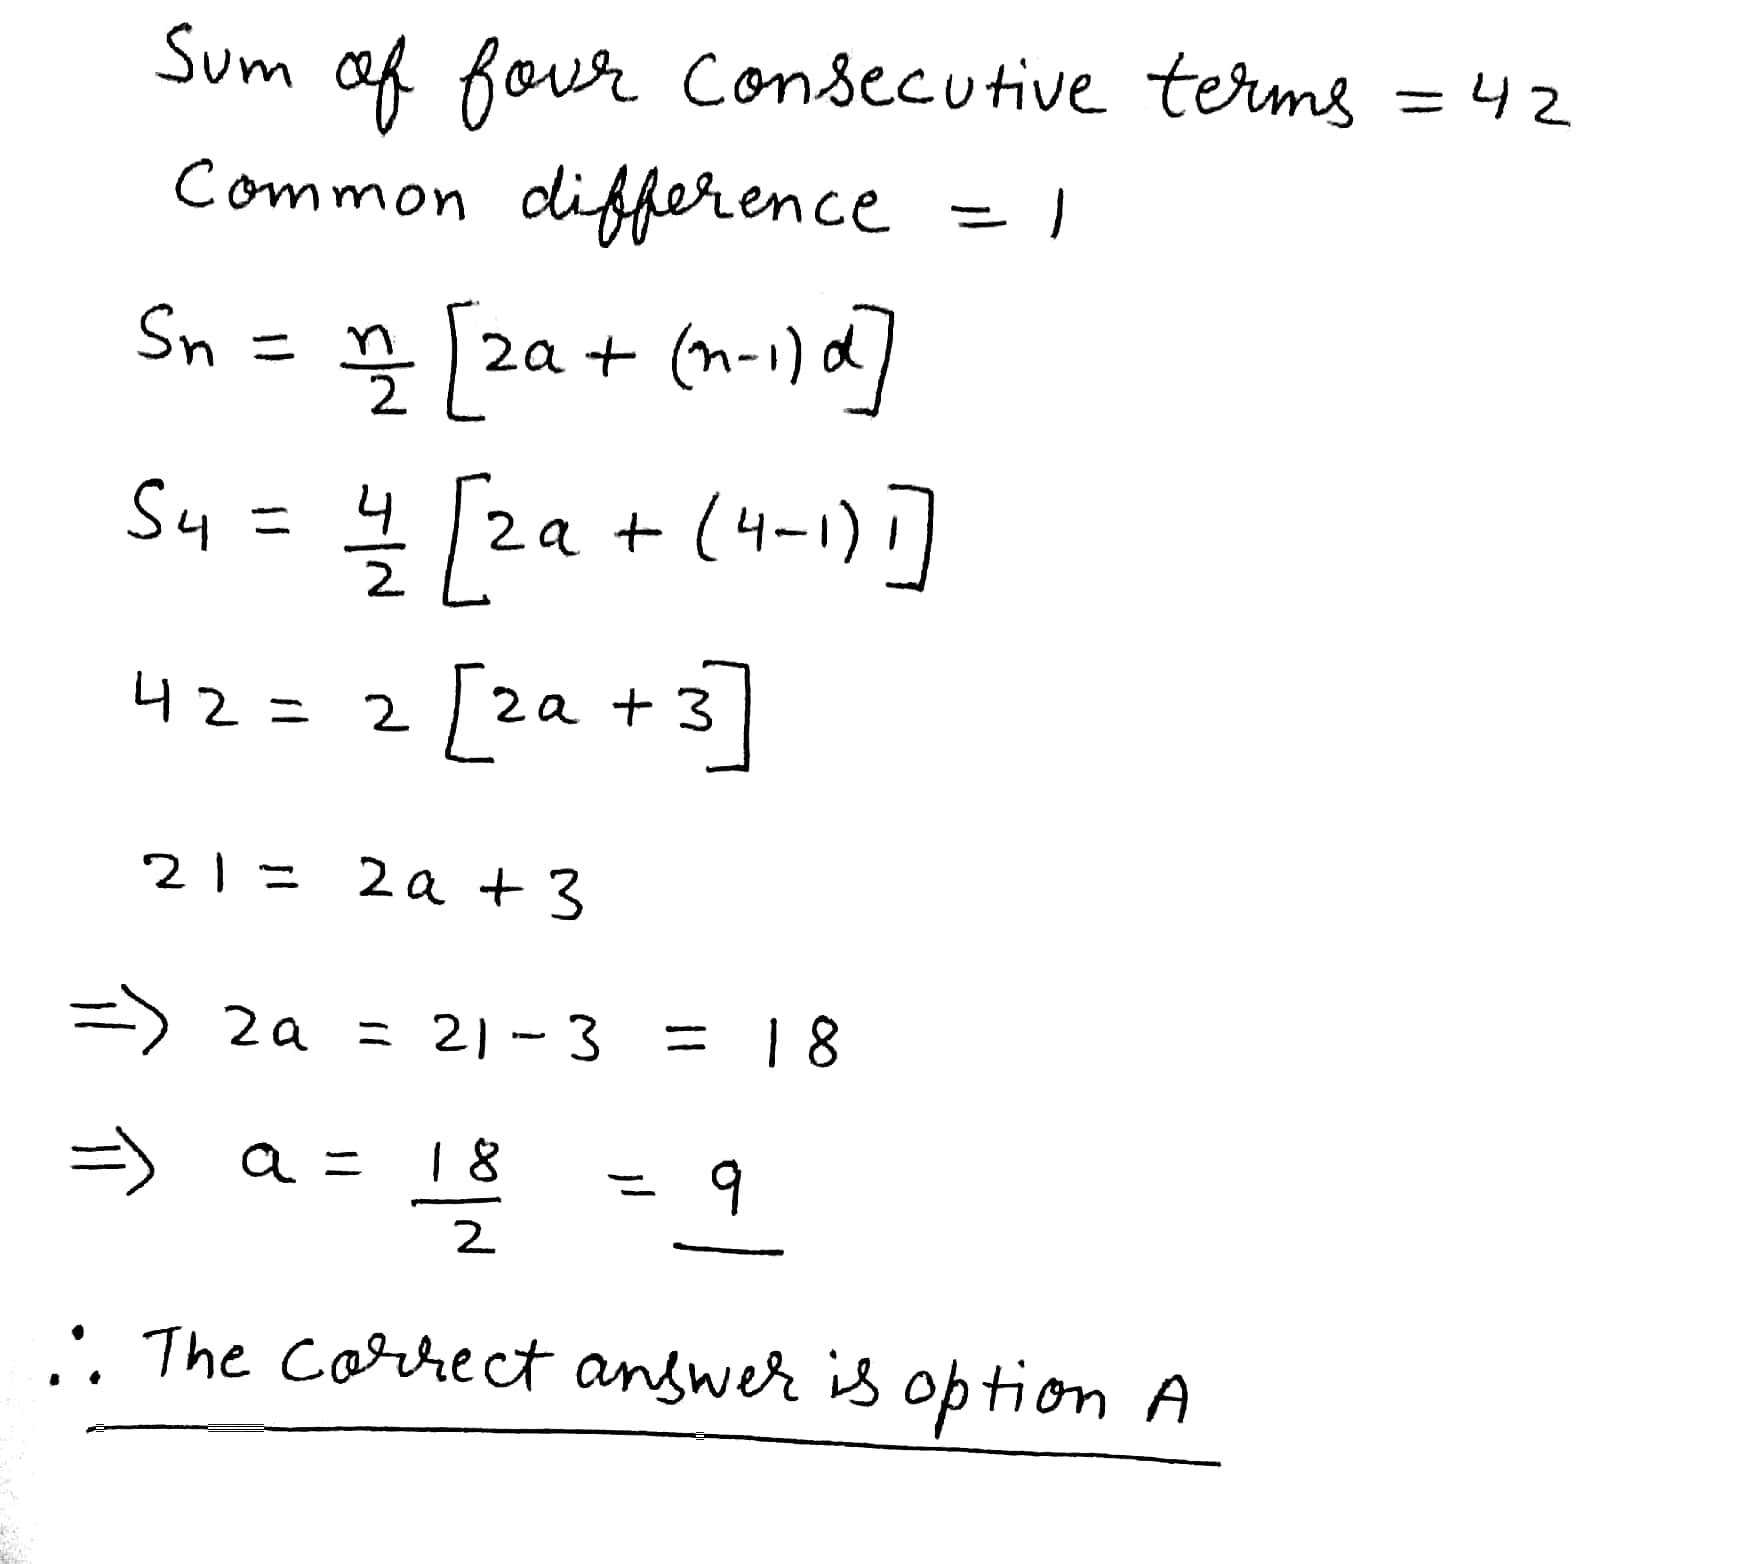 Sum of four consecutive terms = 42
Common difference = 1
Sn = n/2 [2a + (n-1) d]
S4 = 4/2 [2a + (4-1) 1]
42 = 2 [2a + 3]
21 = 2a + 3
=> 2a = 21 - 3 = 18
=> a = 18/2 = 9
∴ The correct answer is option A